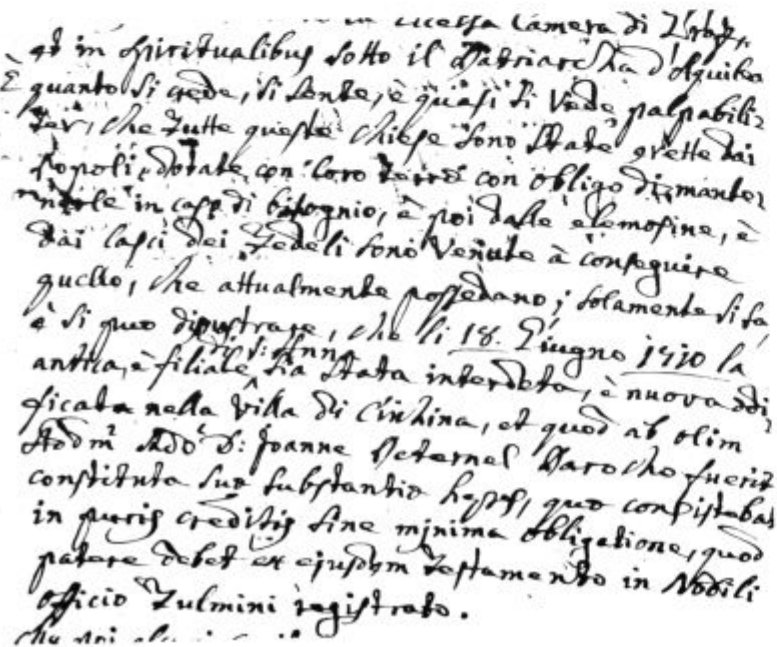 Camera di
et in Spiritualibus sotto il Patriarcha d'Aquilea
È quanto si crede, si sente, è quasi si vede palpabili=
ter, che tutte queste chiese sono state erette dai
Popoli, dotate con loro terre con obligo di mante
nerle in caso di bisognio, è poi dalle elemosine, è
dai lasci dei Fedeli sono venute à conseguire
quello, che attualmente possedano; solamente si sa
è si puo dimostrare, che li 18. Giugno la
antica, è filiale di S: Anna sia stata interdeta, è nuova edi
ficata nella villa di Cinhina, et quod ab olim
D: Joanne Peternel Parocho fuerit
constituta sua substantia heres, que consistebat
in puris creditis sine minima obligatione, quod
patere debet ex ejusdem testamento in Nobili
officio Tulmini registrato.
che